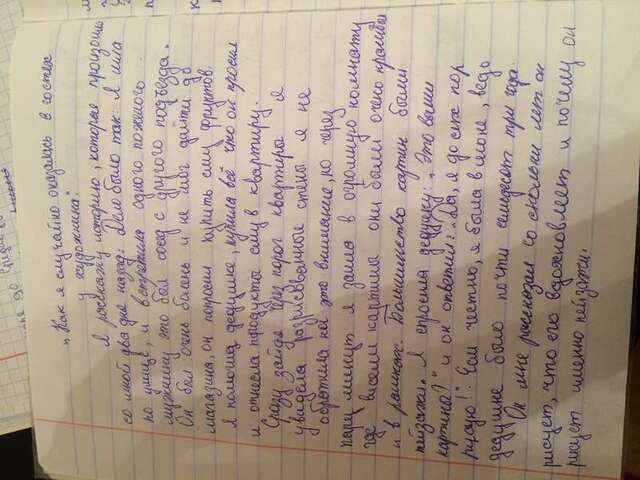 „Как я случайно оказалась в гостях
у художника."
Я расскажу историю, которая произошла
со мной два дня назад. Дело было так: Я шла
по улице, и встретила одного пожелого
мужчину это был сосед с другого подъезда.
Он был очень болень и не мог дайти до
магазина, он попросил купить ему фруктов.
Я помогла дедушке, купила всё что он просил
и отнесла продукты ему в квартиру.
Сразу зайдя через порог квартиры я
увидела разрисованные стены я не
обратила на это внимание, но через
пару минут я зашла в огромную комнату
где висели картины они были очень красивые
и в рамках. Большинство картин были
пейзажи. Я спросила дедушку: „Это ваши
картины?" и он ответил: „Да, я до сих пор
рисую!". Если честно, я была в шоке, ведь
дедушке было почти семьдесят три года.
Он мне рассказал со скольки лет он
рисует, что его вдохновляет и почему он
рисует именно пейзажи.